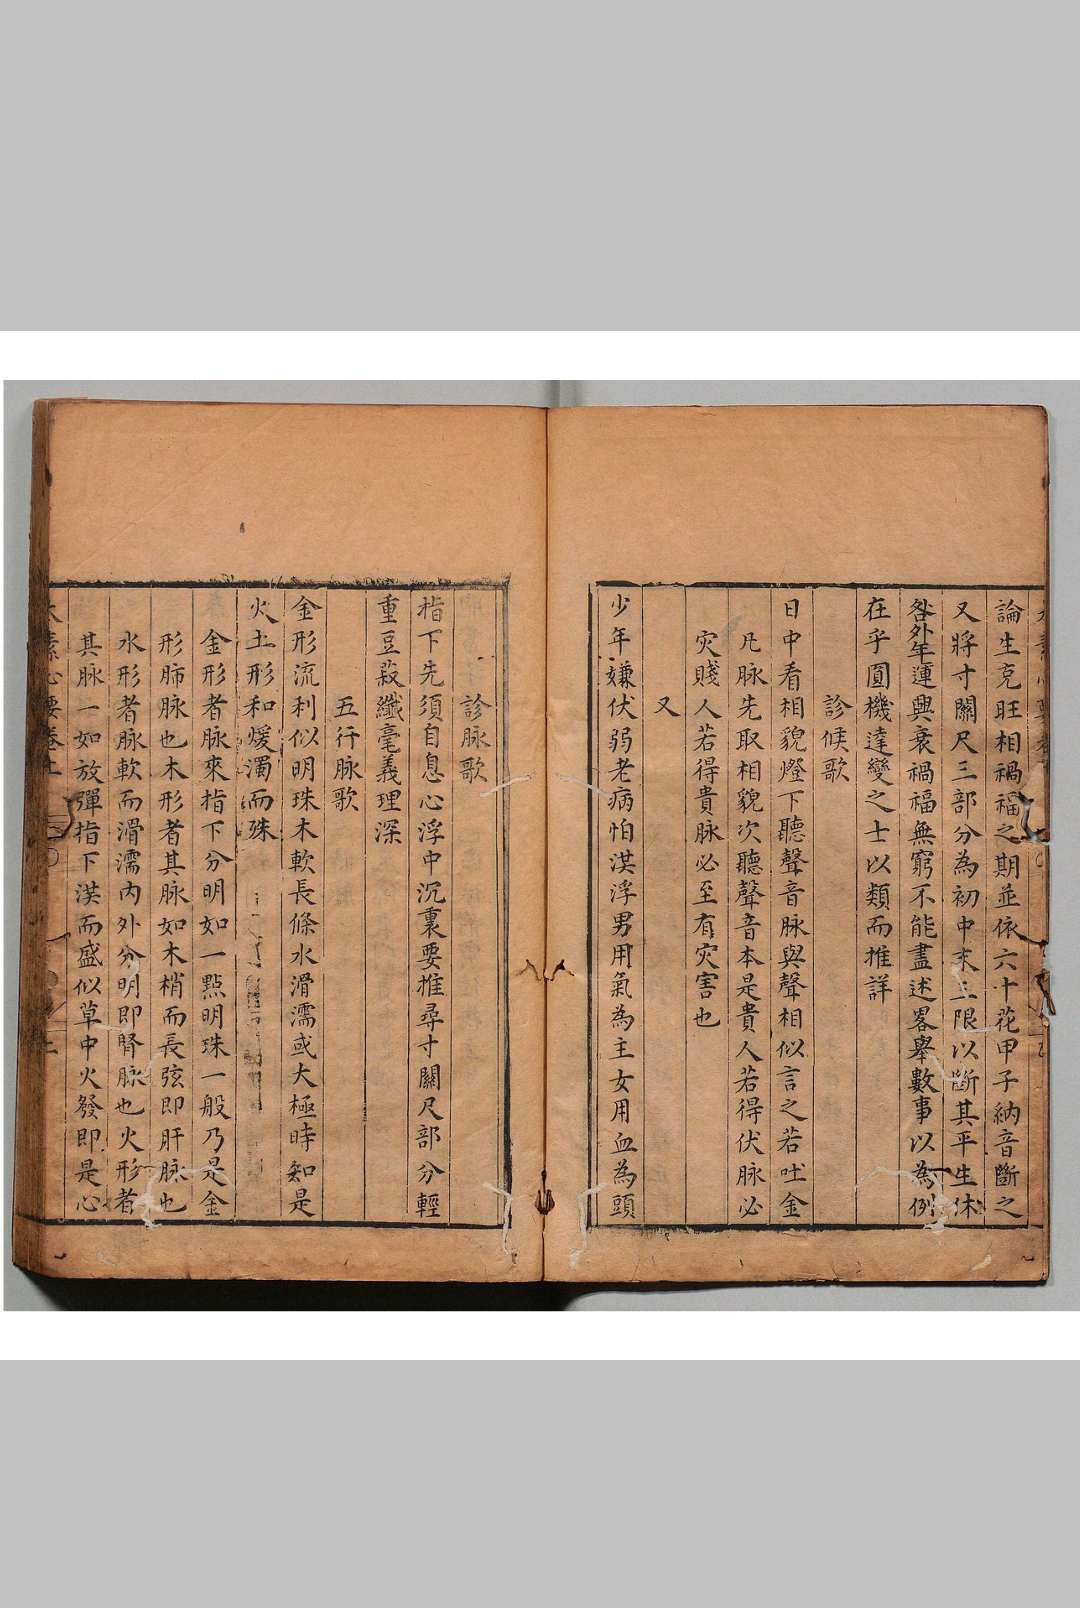 論生克旺相禍福之期並依六十花甲子納音斷之
又將寸關尺三部分為初中末三限以斷其平生休
咎外年運興衰禍福無窮不能盡述畧舉數事以為例
在乎圓機達變之士以類而推詳
診候歌
日中看相貌燈下聽聲音脉與聲相似言之若吐金
凡脉先取相貌次聽聲音本是貴人若得伏脉必
灾賤人若得貴脉必至有灾害也
又
少年嫌伏弱老病怕洪浮男用氣為主女用血為頭
診脉歌
指下先須自息心浮中沉裏要推尋寸關尺部分輕
重豆菽纖毫義理深
五行脉歌
金形流利似明珠木軟長條水滑濡或大極時知是
火土形和煖濁而殊
金形者脉來指下分明如一㸃明珠一般乃是金
形肺脉也木形者其脉如木梢而長弦即肝脉也
水形者脉軟而滑濡内外分明即腎脉也火形者
其脉一如放彈指下洪而盛似草中火發即是心
太素心要卷上